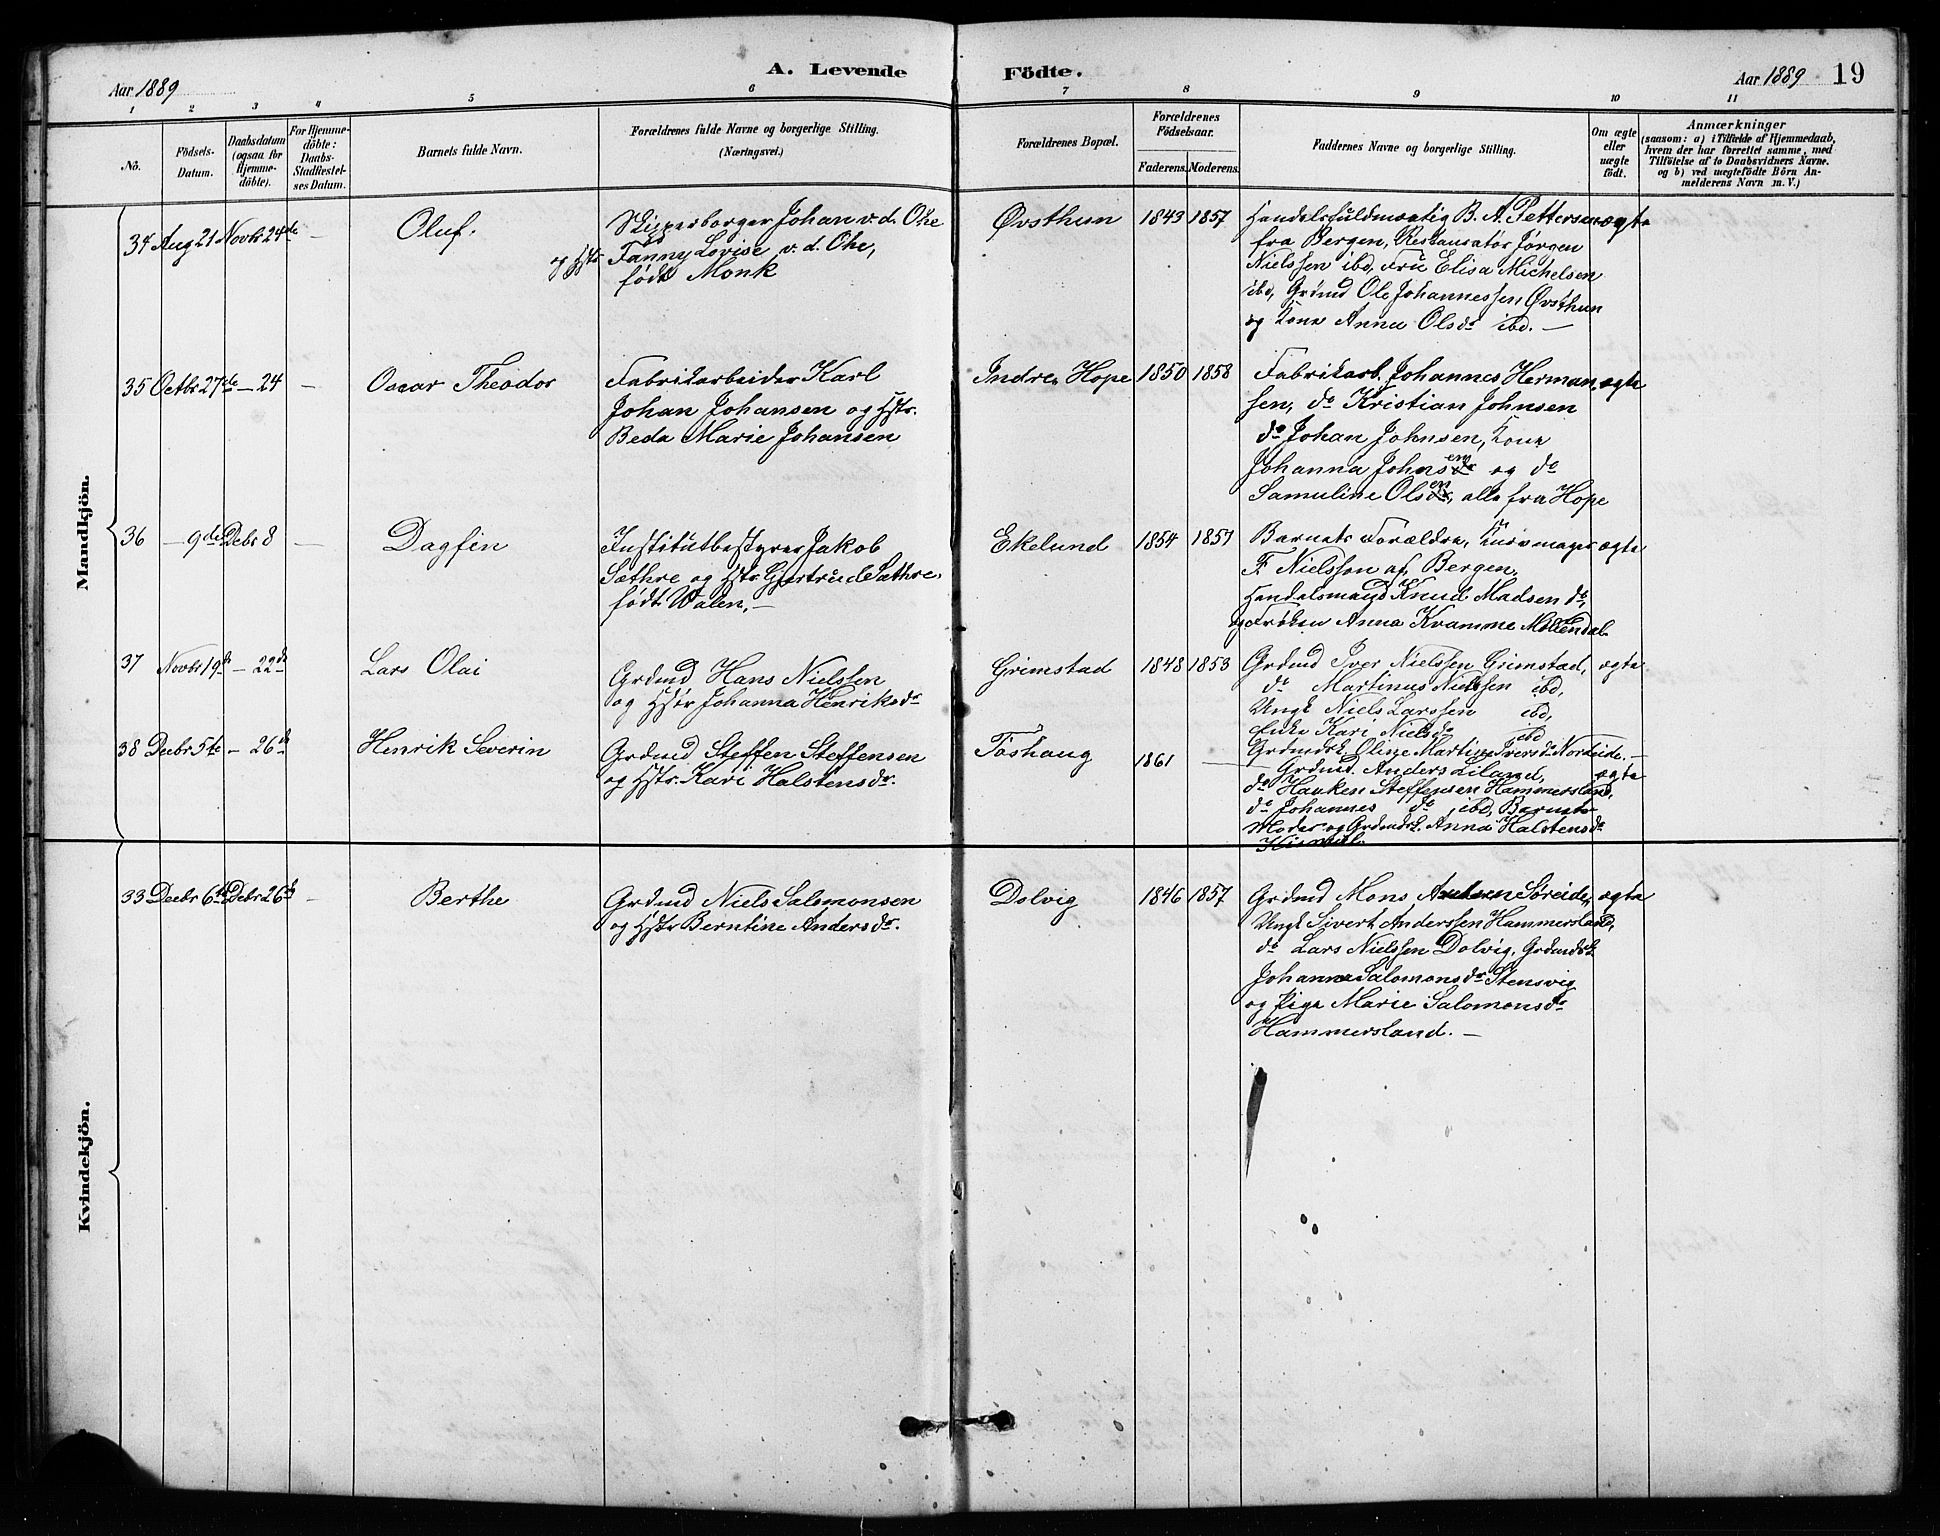 Aar 1889
A. Levende Födte.
Aar 1889 19
1 2 3 4 5 6 7 8 9 10 11
No.
Födsels-
Datum.
Daabsdatum
(ogsaa for
Hjemme-
döbte).
For Hjemme-
döbte:
Daabs-
Stadfæstel-
ses Datum.
Barnets fulde Navn.
Forældrenes fulde Navne og borgerlige Stilling.
(Næringsvei.)
Forældrenes Bopæl.
Forældrenes
Födselsaar.
Faderens. Moderens.
Faddernes Navne og borgerlige Stilling.
Om ægte
eller
uægte
födt.
Anmærkninger
(saasom: a) i Tilfælde af Hjemmedaab,
hvem der har forrettet samme, med
Tilföielse af to Daabsvidners Navne.
og b) ved uægtefödte Börn An-
melderens Navn m. V.)
Mandkjön.
34 Aug 21 Novbr 24de — Oluf.
Skipperborger Johan v. d. Ohe
og Hstr Fanny Lovise v. d. Ohe,
født Monk
Øvsthun 1843 1857
Handelsfuldmægtig B. A. Pettersen ægte
fra Bergen, Restauratør Jørgen
Nielssen ibd, Fru Elisa Michelsen
ibd, Grdmd Ole Johannessen Øvsthun
og Kone Anna Olsdr ibd. —
35 Octbr 27de — 24 — Oscar Theodor
Fabrikarbeider Karl
Johan Johansen og Hstr.
Beda Marie Johansen
Indre Hope 1850 1858
Fabrikarb. Johannes Herman- ægte
sen, do Kristian Johnsen
do Johan Johnsen, Kone
Johanna Johnsen og do
Samuline Olsen, alle fra Hope
36 — 9de Debr 8 — Dagfin
Institutbestyrer Jakob
Sæthre og Hstr Gjertrude Sæthre,
født Walen. —
Ekelund 1854 1857
Barnets Forældre, ægte
F. Nielssen af Bergen,
Handelsmand Knud Madsen do,
og Frøken Anna Kramme Møllendal
37 Novbr 19de — 22de Lars Olai
Grdmd Hans Nielssen
og Hstr Johanna Henriksdr
Grimstad 1848 1853
Grdmd Iver Nielssen Grimstad, ægte
do Martinus Nielssen ibd,
Ungk Niels Larssen ibd,
Enke Kari Nielsdr ibd
Grdmdsk. Oline Martine Iversdr Nordeide. —
38 Decbr 5te — 26de Henrik Severin
Grdmd Steffen Steffensen
og Hstr. Kari Halstensdr.
Tøshaug 1861 —
Grdmd. Anders Liland, ægte
do Hauken Steffensen Hammersland,
do Johannes do ibd, Barnets
Moder og Grdmdsk. Anna Halstensdr
Kvindekjön.
33 Decbr 6te Debr 26de — Berthe
Grdmd Niels Salomonsen
og Hstr Berntine Andersdr.
Dolvig 1846 1857
Grdmd Mons Søreide, ægte
Ungk Sivert Anderssen Hammersland,
do Lars Nielssen Dolvig, Grdmdsk.
Johanne Salomonsdr Stensvig
og Pige Marie Salomonsdr
Hammersland. —